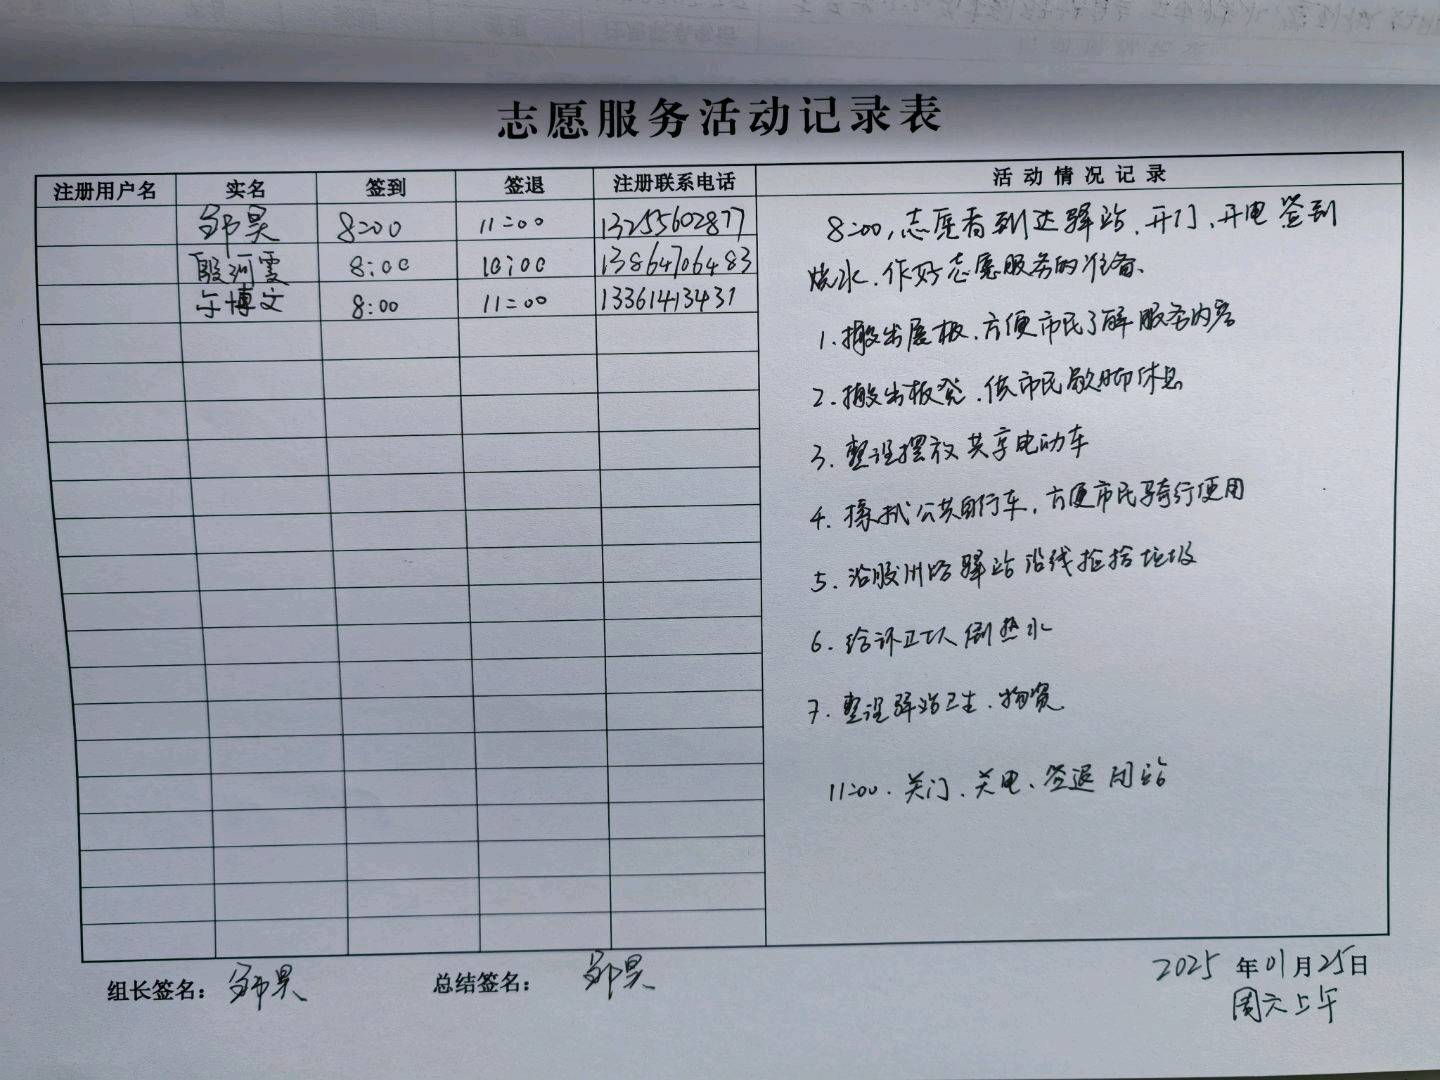 志愿服务活动记录表
注册用户名 实名 签到 签退 注册联系电话 活动情况记录
邹昊 8:00 11:00 13255602877
殷河雯 8:00 10:00 13864706483
博文 8:00 11:00 13361413431
8:00,志愿者到达驿站、开门、开电 签到
烧水、作好志愿服务的准备、
1. 搬出展板、方便市民了解服务内容
2. 搬出板凳、供市民歇脚休息
3. 整理摆放共享电动车
4. 擦拭公共自行车,方便市民骑行使用
5. 沿驿站沿线捡拾垃圾
6. 给环卫工人倒热水
7. 整理驿站卫生、物资
11:00、关门、关电、签退 闭站
组长签名: 邹昊 总结签名: 邹昊
2025 年 01 月 25 日
周六上午